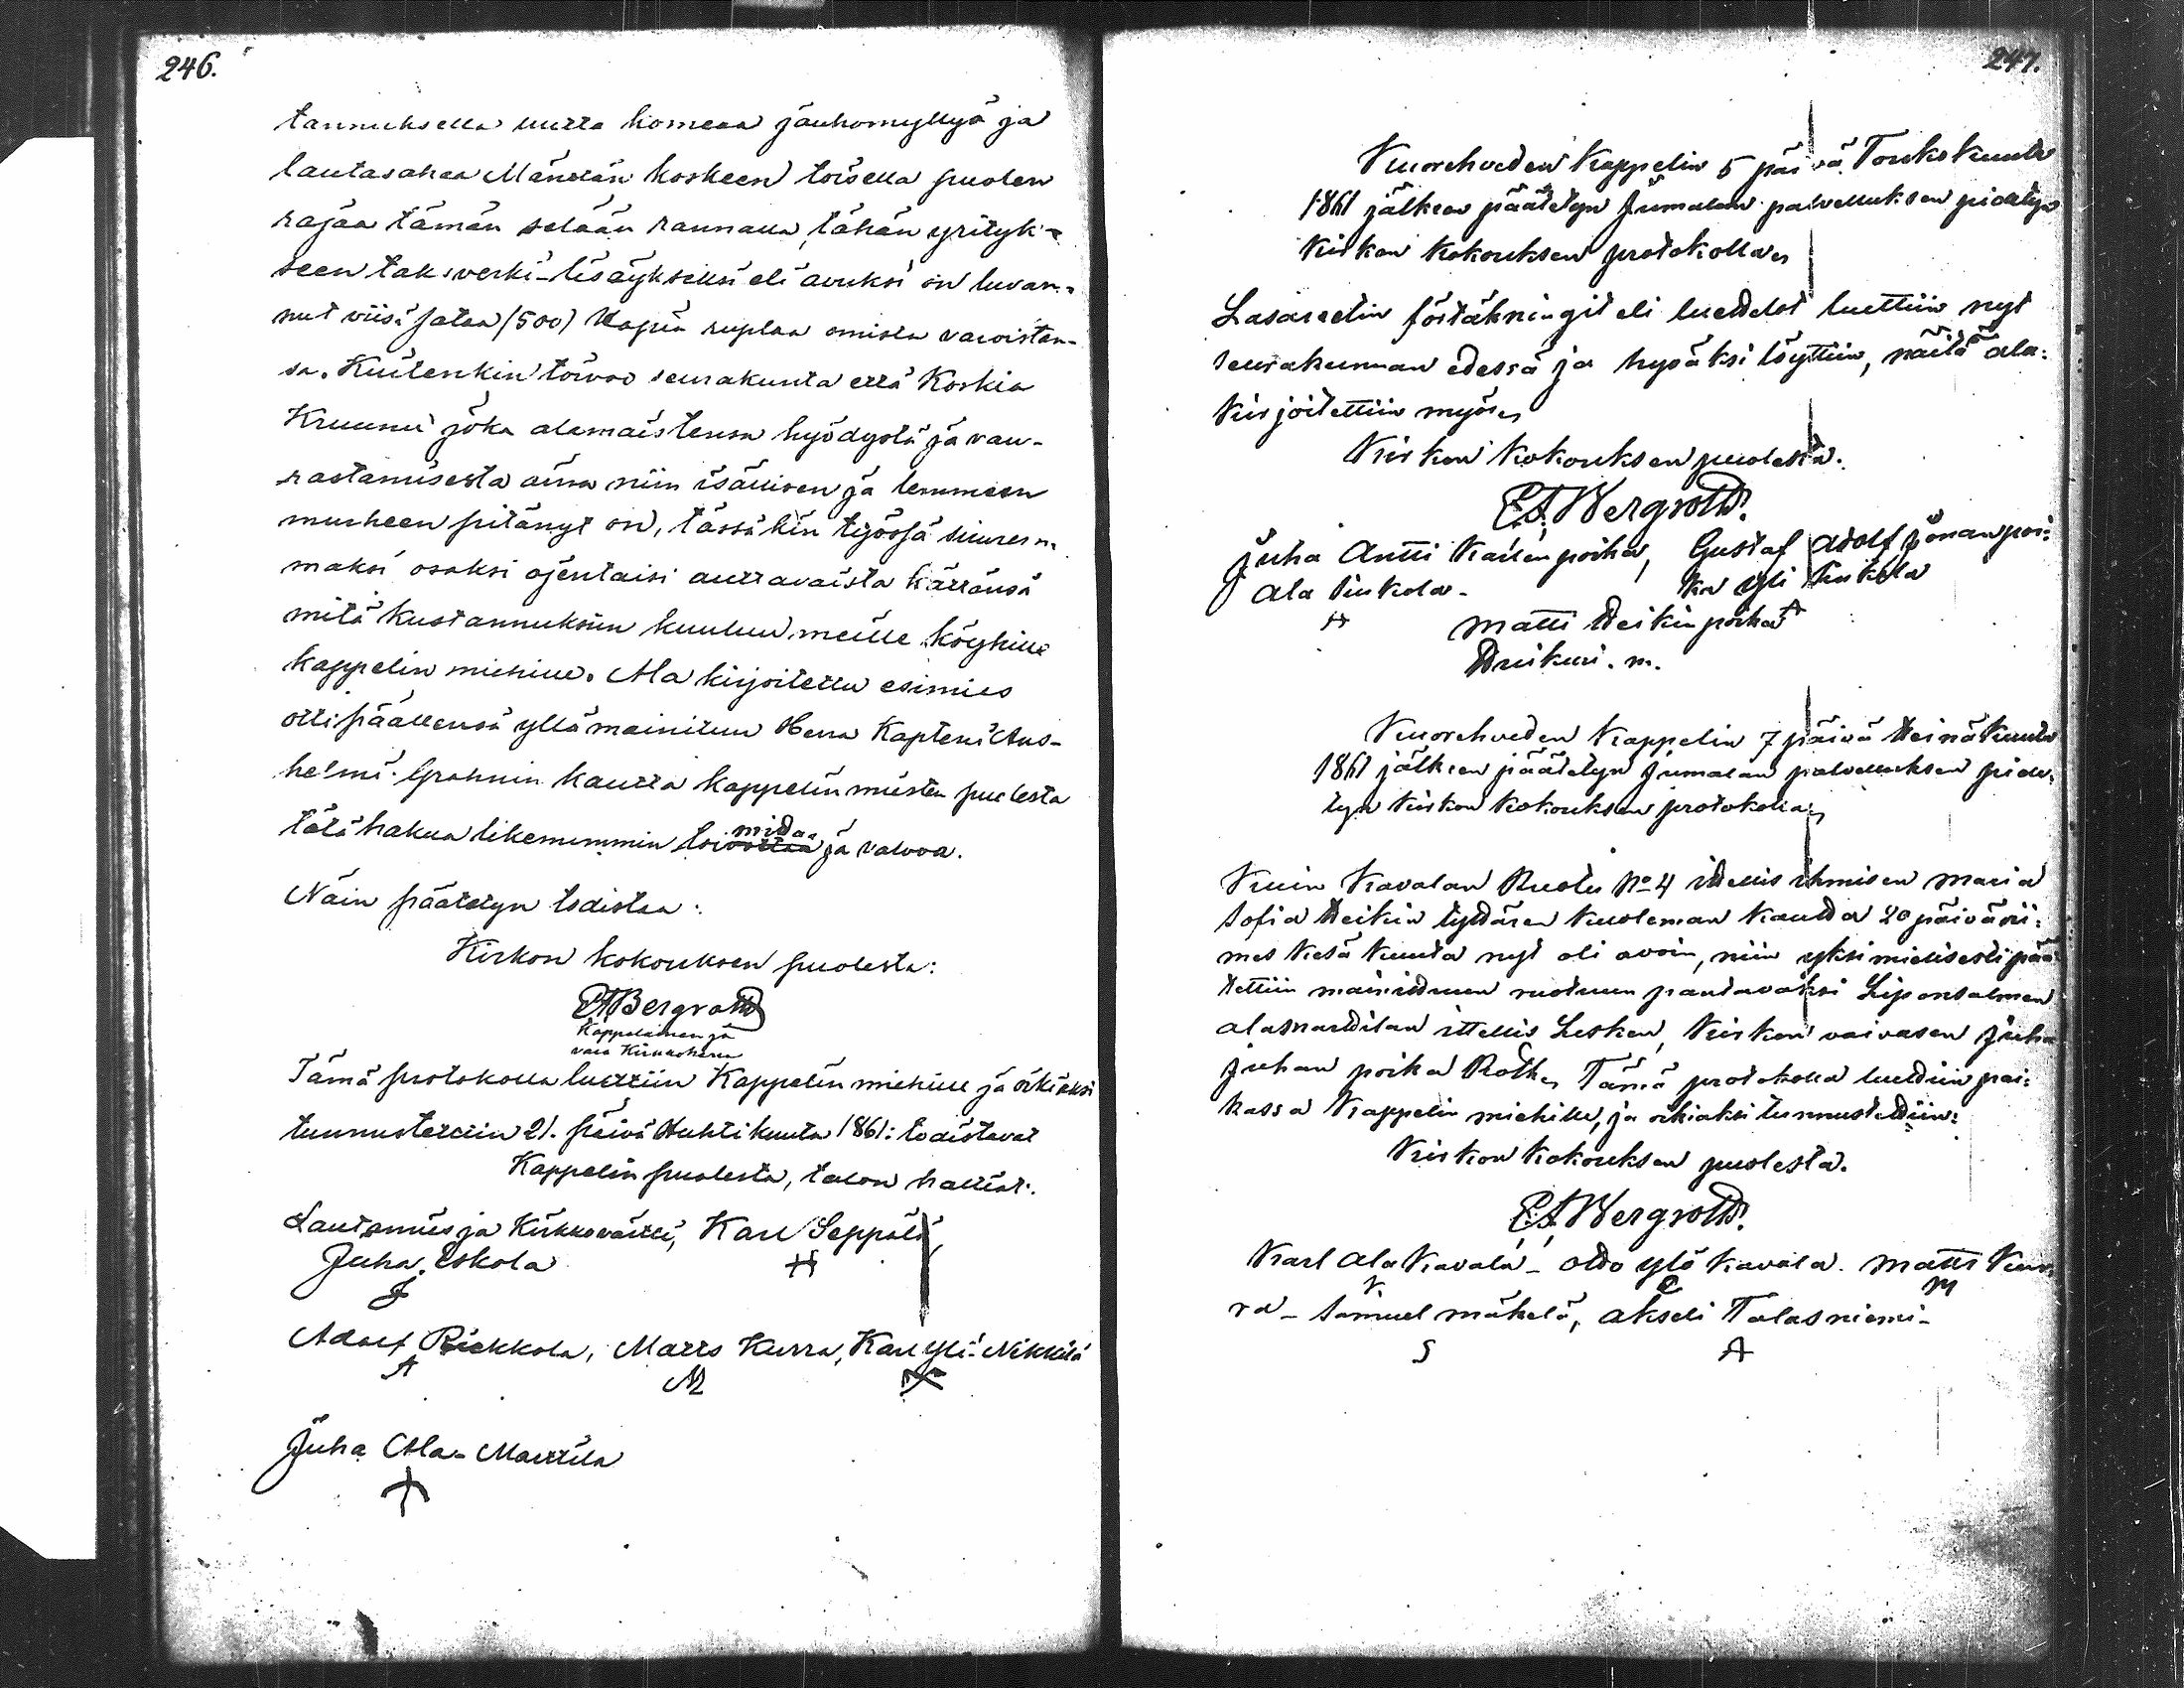 246.
tannuksella uutta komeaa jauhomyllyä ja
lautasahaa Mäntän koskeen toisella puolen
rajaa tämän selään rannalla, tähän yrityk-
seen taksverki-lisäykseksi eli avuksi on luvan-
nut viisi sataa (500) Kopia ruplaa omista varoistan-
sa. Kuitenkin toivoo seurakunta että Korkia
Kruunu joka alamaistensa hyödystä ja vau-
rastamisesta aina niin isällisen ja lemmeen
murheen pitänyt on, tässäkin työssä suurem-
maksi osaksi ojentaisi auttavaista kättänsä
mitä kustannuksiin kuuluu meille köyhille
kappelin miehille. Ala kirjoitettu esimies
otti päällensä yllämainitun Herra Kapteni Aus-
helmi Grahnin kautta kappelin miesten puolesta
tätä hakua likemmin toimidaa ja valvoa.
Näin päätetyn todistaa:
Kirkon kokouksen puolesta:
EABergroth
Kappalainen ja
vara Kirkkoherra
Tämä protokolla luettiin Kappelin miehille ja oikiaksi
tunnustettiin 21. päivä Huhtikuuta 1861: todistavat
Kappelin puolesta, talon haltiat:
Lautamies ja Kirkkoväärti, Karl Seppälä,
Juha Eskola
J
Adolf Riekkola, Matts Kurra, Karl Yli-Nikkilä
A M
Juha Ala-Mattila
247.
Kuorehveden Kappelin 5 päivä Toukokuuta
1861 jälkeen päätetyn Jumalan palvelluksen pidetyn
Kirkon Kokouksen protokolla,
Lasaretin förtäkningit eli luettelot luettiin nyt
seurakunnan edessä ja hyväksi löyttiin, näitä ala-
kirjoitettiin myös,
Kirkon Kokouksen puolesta.
EA Bergroth.
Juha Antti Kallenpoika, Gustaf Adolf Jonanpoi-
Ala Uukola - ka Yli Uukola
A
Matti Heikinpoika
M.
Kuorehveden Kappelin 7 päivä Heinäkuuta
1861 jälkeen päätetyn Jumalan palvelluksen pide-
tyn Kirkon Kokouksen protokolla,
Kuin Kavalan Ruotu No 4 itellis ihmisen Maria
Sofia Heikin tyttären kuoleman kautta 20 päivä vii-
mes Kesä kuuta nyt oli avoin, niin yksimielisesti pää-
tettiin mainittuun ruotuun pantavaksi Liponsalmen
alasmartilan ittellis Lesken, Kirkon vaivasen Juha
Juhan poika Roth, Tämä protokolla luettiin pai-
kassa Kappelin miehille, ja oikiaksi tunnustettiin:
Kirkon Kokouksen puolesta.
EA Bergroth.
Karl Ala Kavala - Otto Ylö Kavala. Matti Kur-
K O M
ra - Samuel Mäkelä, Akseli Talasniemi -
S A